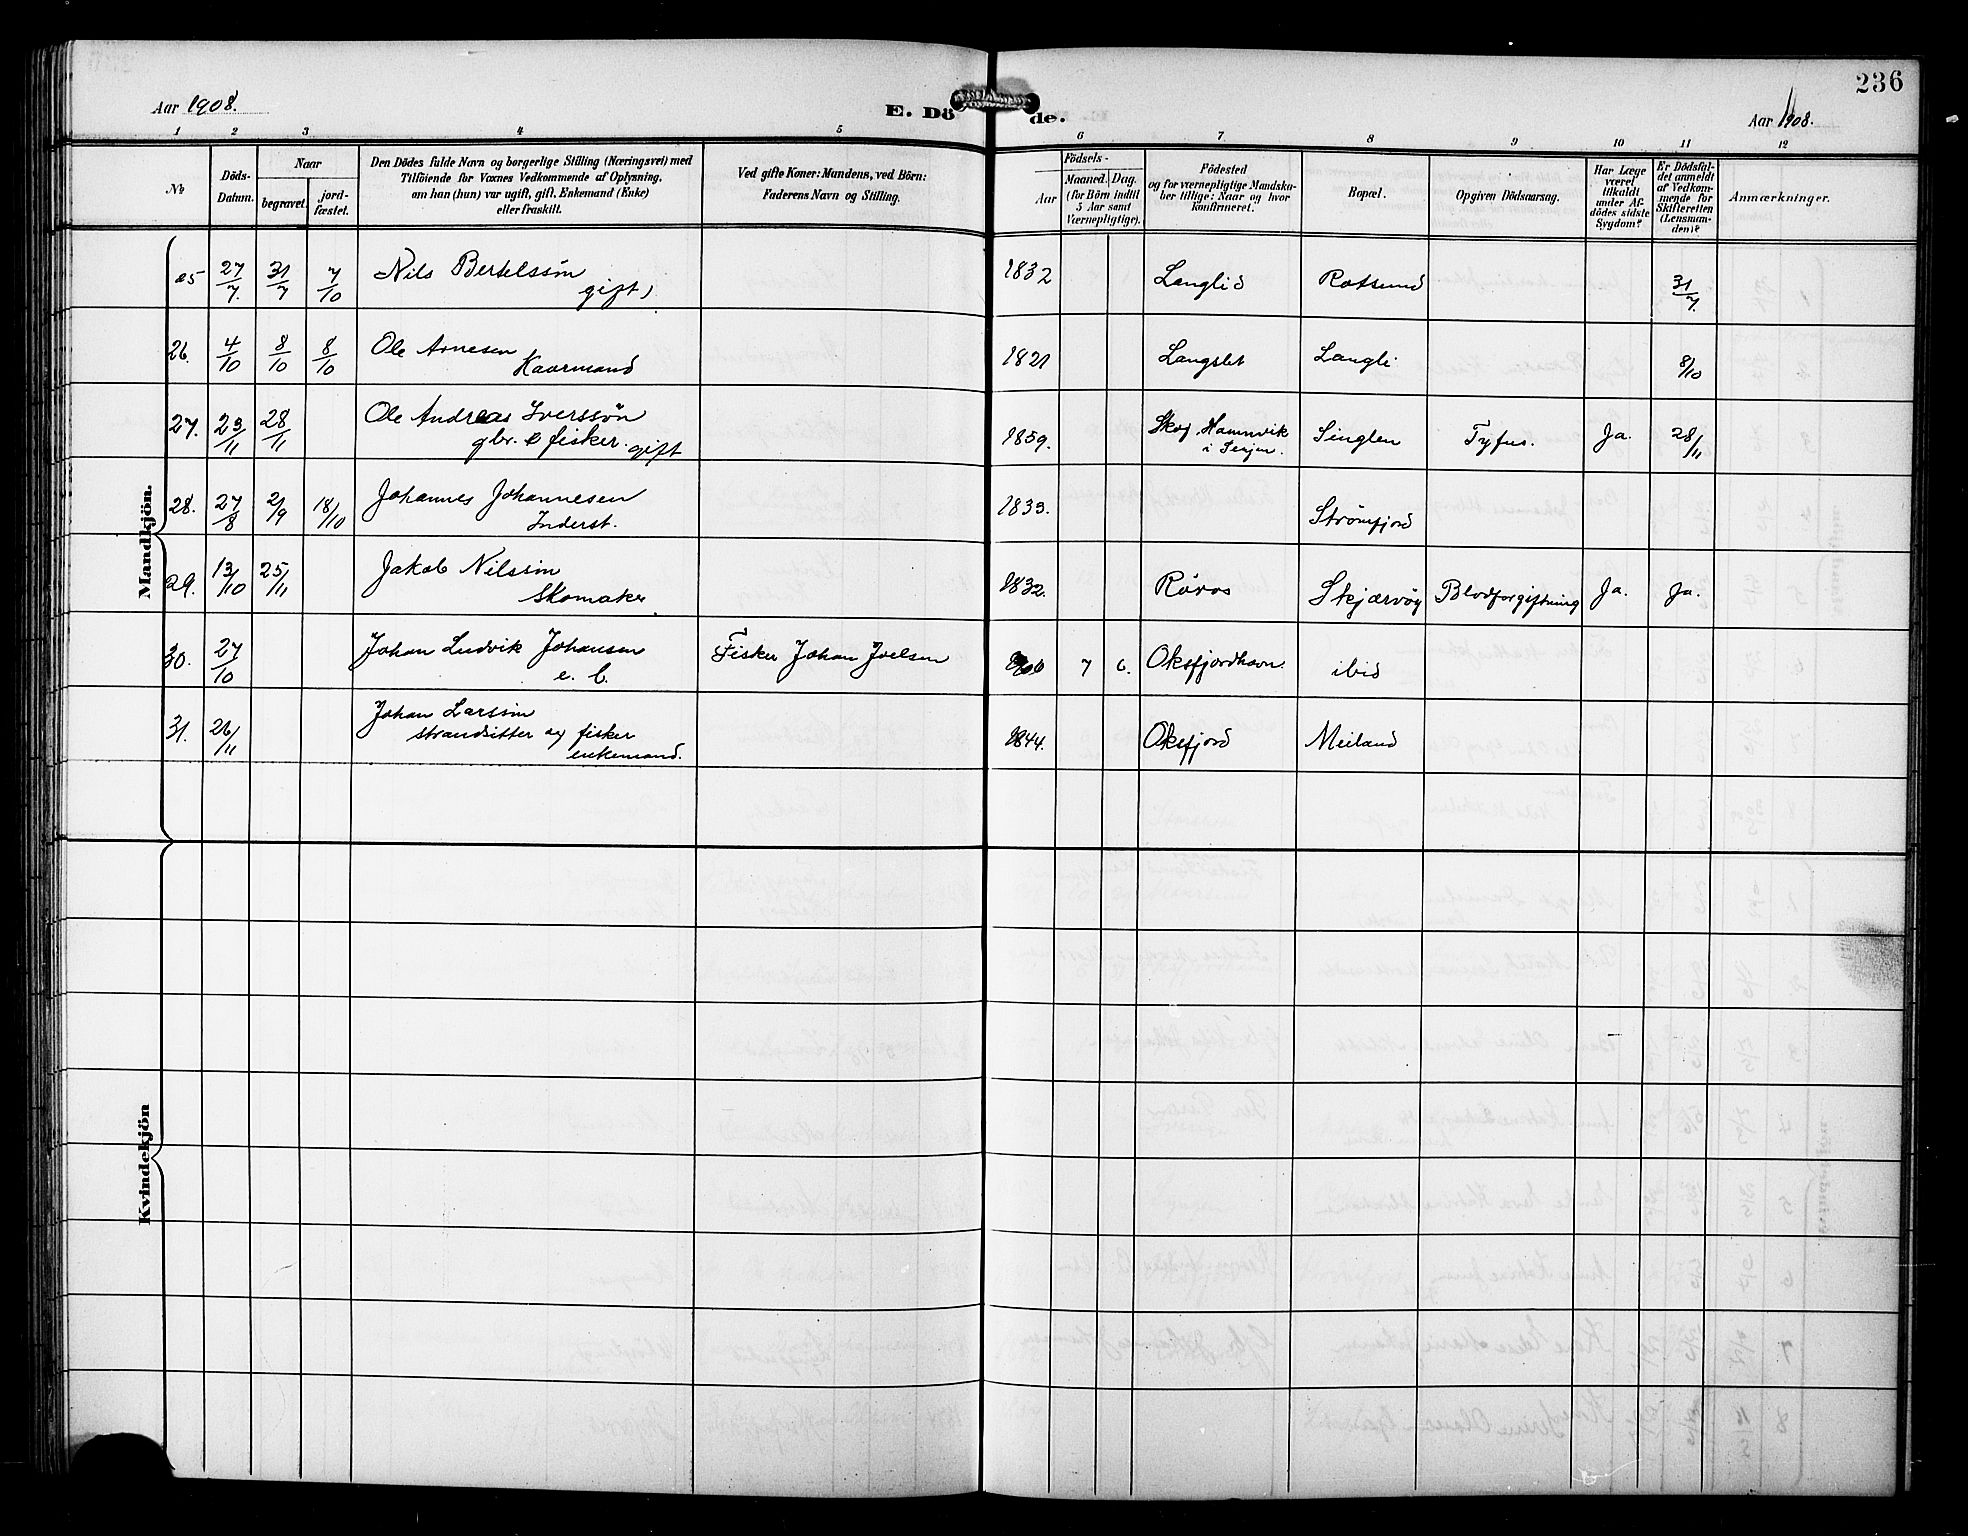 236
Aar 1908.
E. Dö de.
Aar 1908.
1 2 3 4 5 6 7 8 9 10 11 12
No
Döds-
Datum.
Naar
begravet.
jord-
fæstet.
Den Dödes fulde Navn og borgerlige Stilling (Næringsvei) med
Tilföiende for Voxnes Vedkommende af Oplysning,
om han (hun) var ugift, gift, Enkemand (Enke)
eller fraskilt.
Ved gifte Koner: Mandens, ved Börn:
Faderens Navn og Stilling.
Födsels-
Aar
Maaned. Dag.
(for Börn indtil
5 Aar samt
Værnepligtige).
Födested
og for værnepligtige Mandska-
ber tillige: Naar og hvor
konfirmeret.
Bopæl.
Opgiven Dödsaarsag.
Har Læge
været
tilkaldt
under Af-
dödes sidste
Sygdom?
Er Dödsfal-
det anmeldt
af Vedkom-
mende for
Skifteretten
(Lensman-
den)?
Anmærkninger.
Mandkjön.
25 27/7. 31/7 7/10 Nils Bertelssön 1832 Langlid Rotsund 31/7.
gift)
26. 4/10 8/10 8/10 Ole Arnesen 1821 Langslet Langli 8/10
Kaarmand
27. 23/11 28/11 Ole Andreas Iverssön 1859. Skog, Hamnvik Singlen Tyfus. Ja. 28/11
gbr. & fisker. gift i Senjen.
28. 27/8 2/9 18/10 Johannes Johannesen 1833. Strömfjord
Inderst.
29. 13/10 25/11 Jakob Nilssön 1832. Røros Skjærvöy Blodforgiftning Ja. Ja.
Skomaker
30. 27/10 Johan Ludvik Johansen Fisker Johan Joelsen 1906 7 6. Oksfjordhavn. ibid
e. b.
31. 26/11 Johan Larssön 1844. Oksfjord Meiland
strandsitter og fisker
enkemand.
Kvindekjön